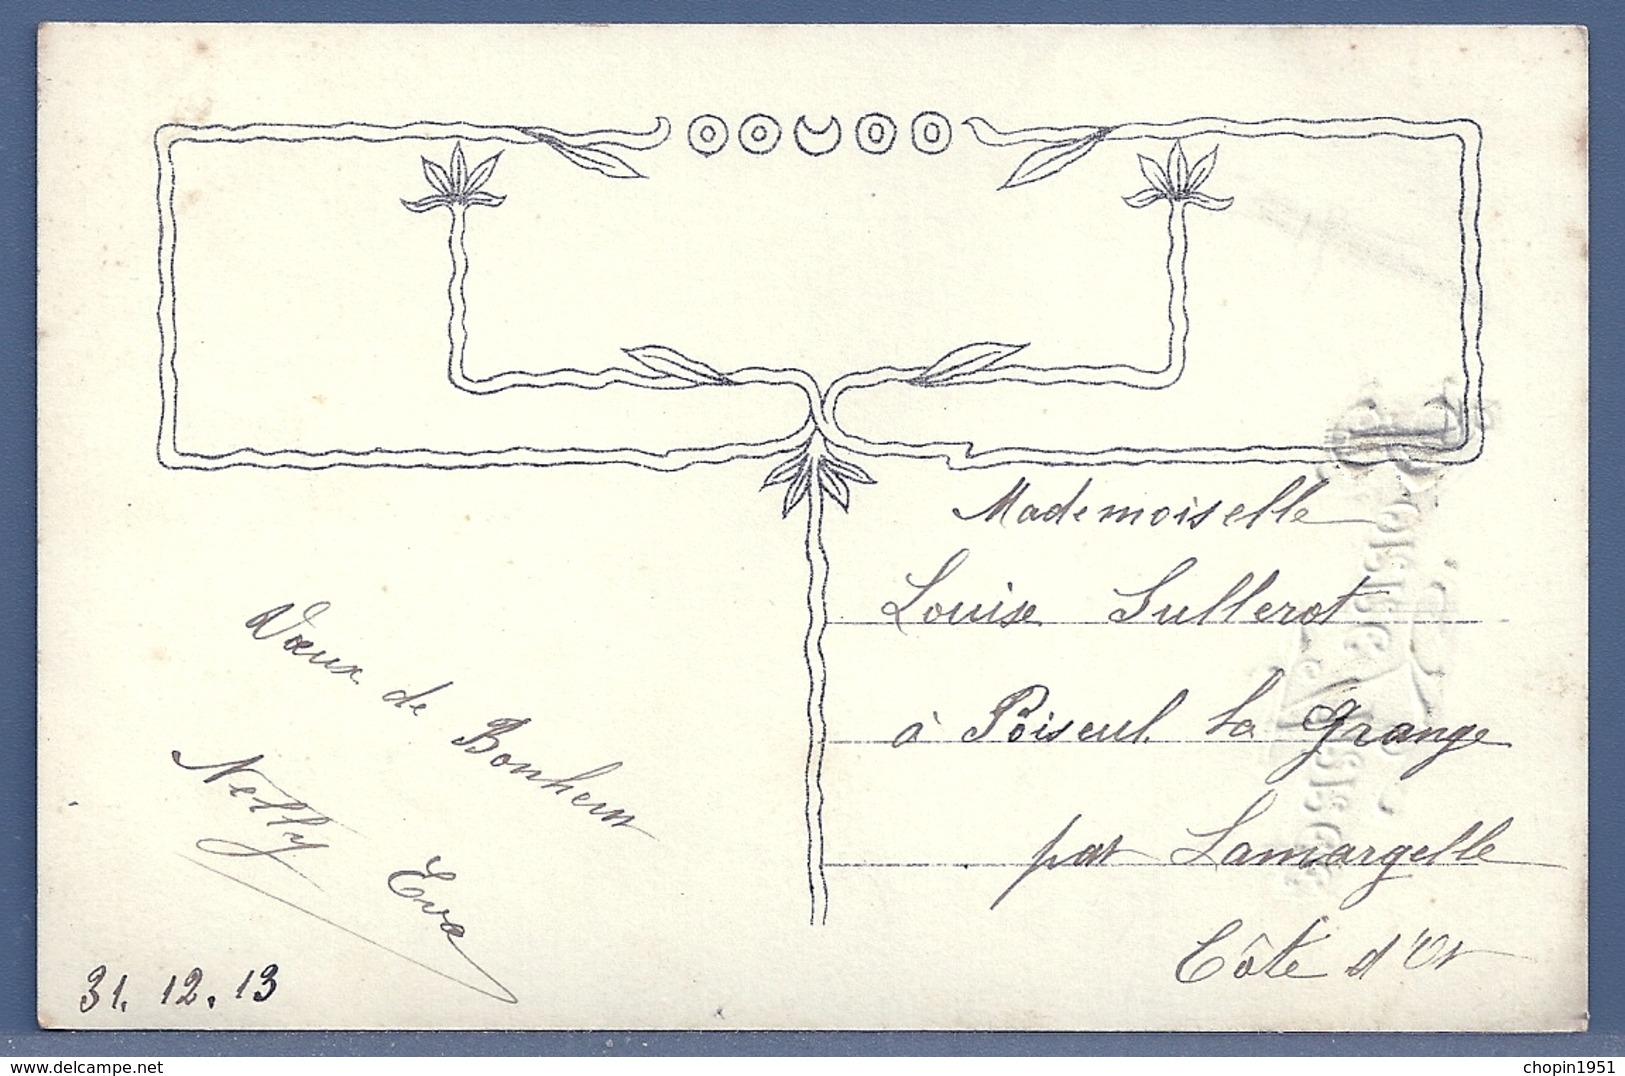 Mademoiselle
Louise Sullerot
à Poiseul la Grange
par Lamargelle
Côte d'Or
Vœux de Bonheur
Nelly Eva
31.12.13
delcampe.net
chopin1951